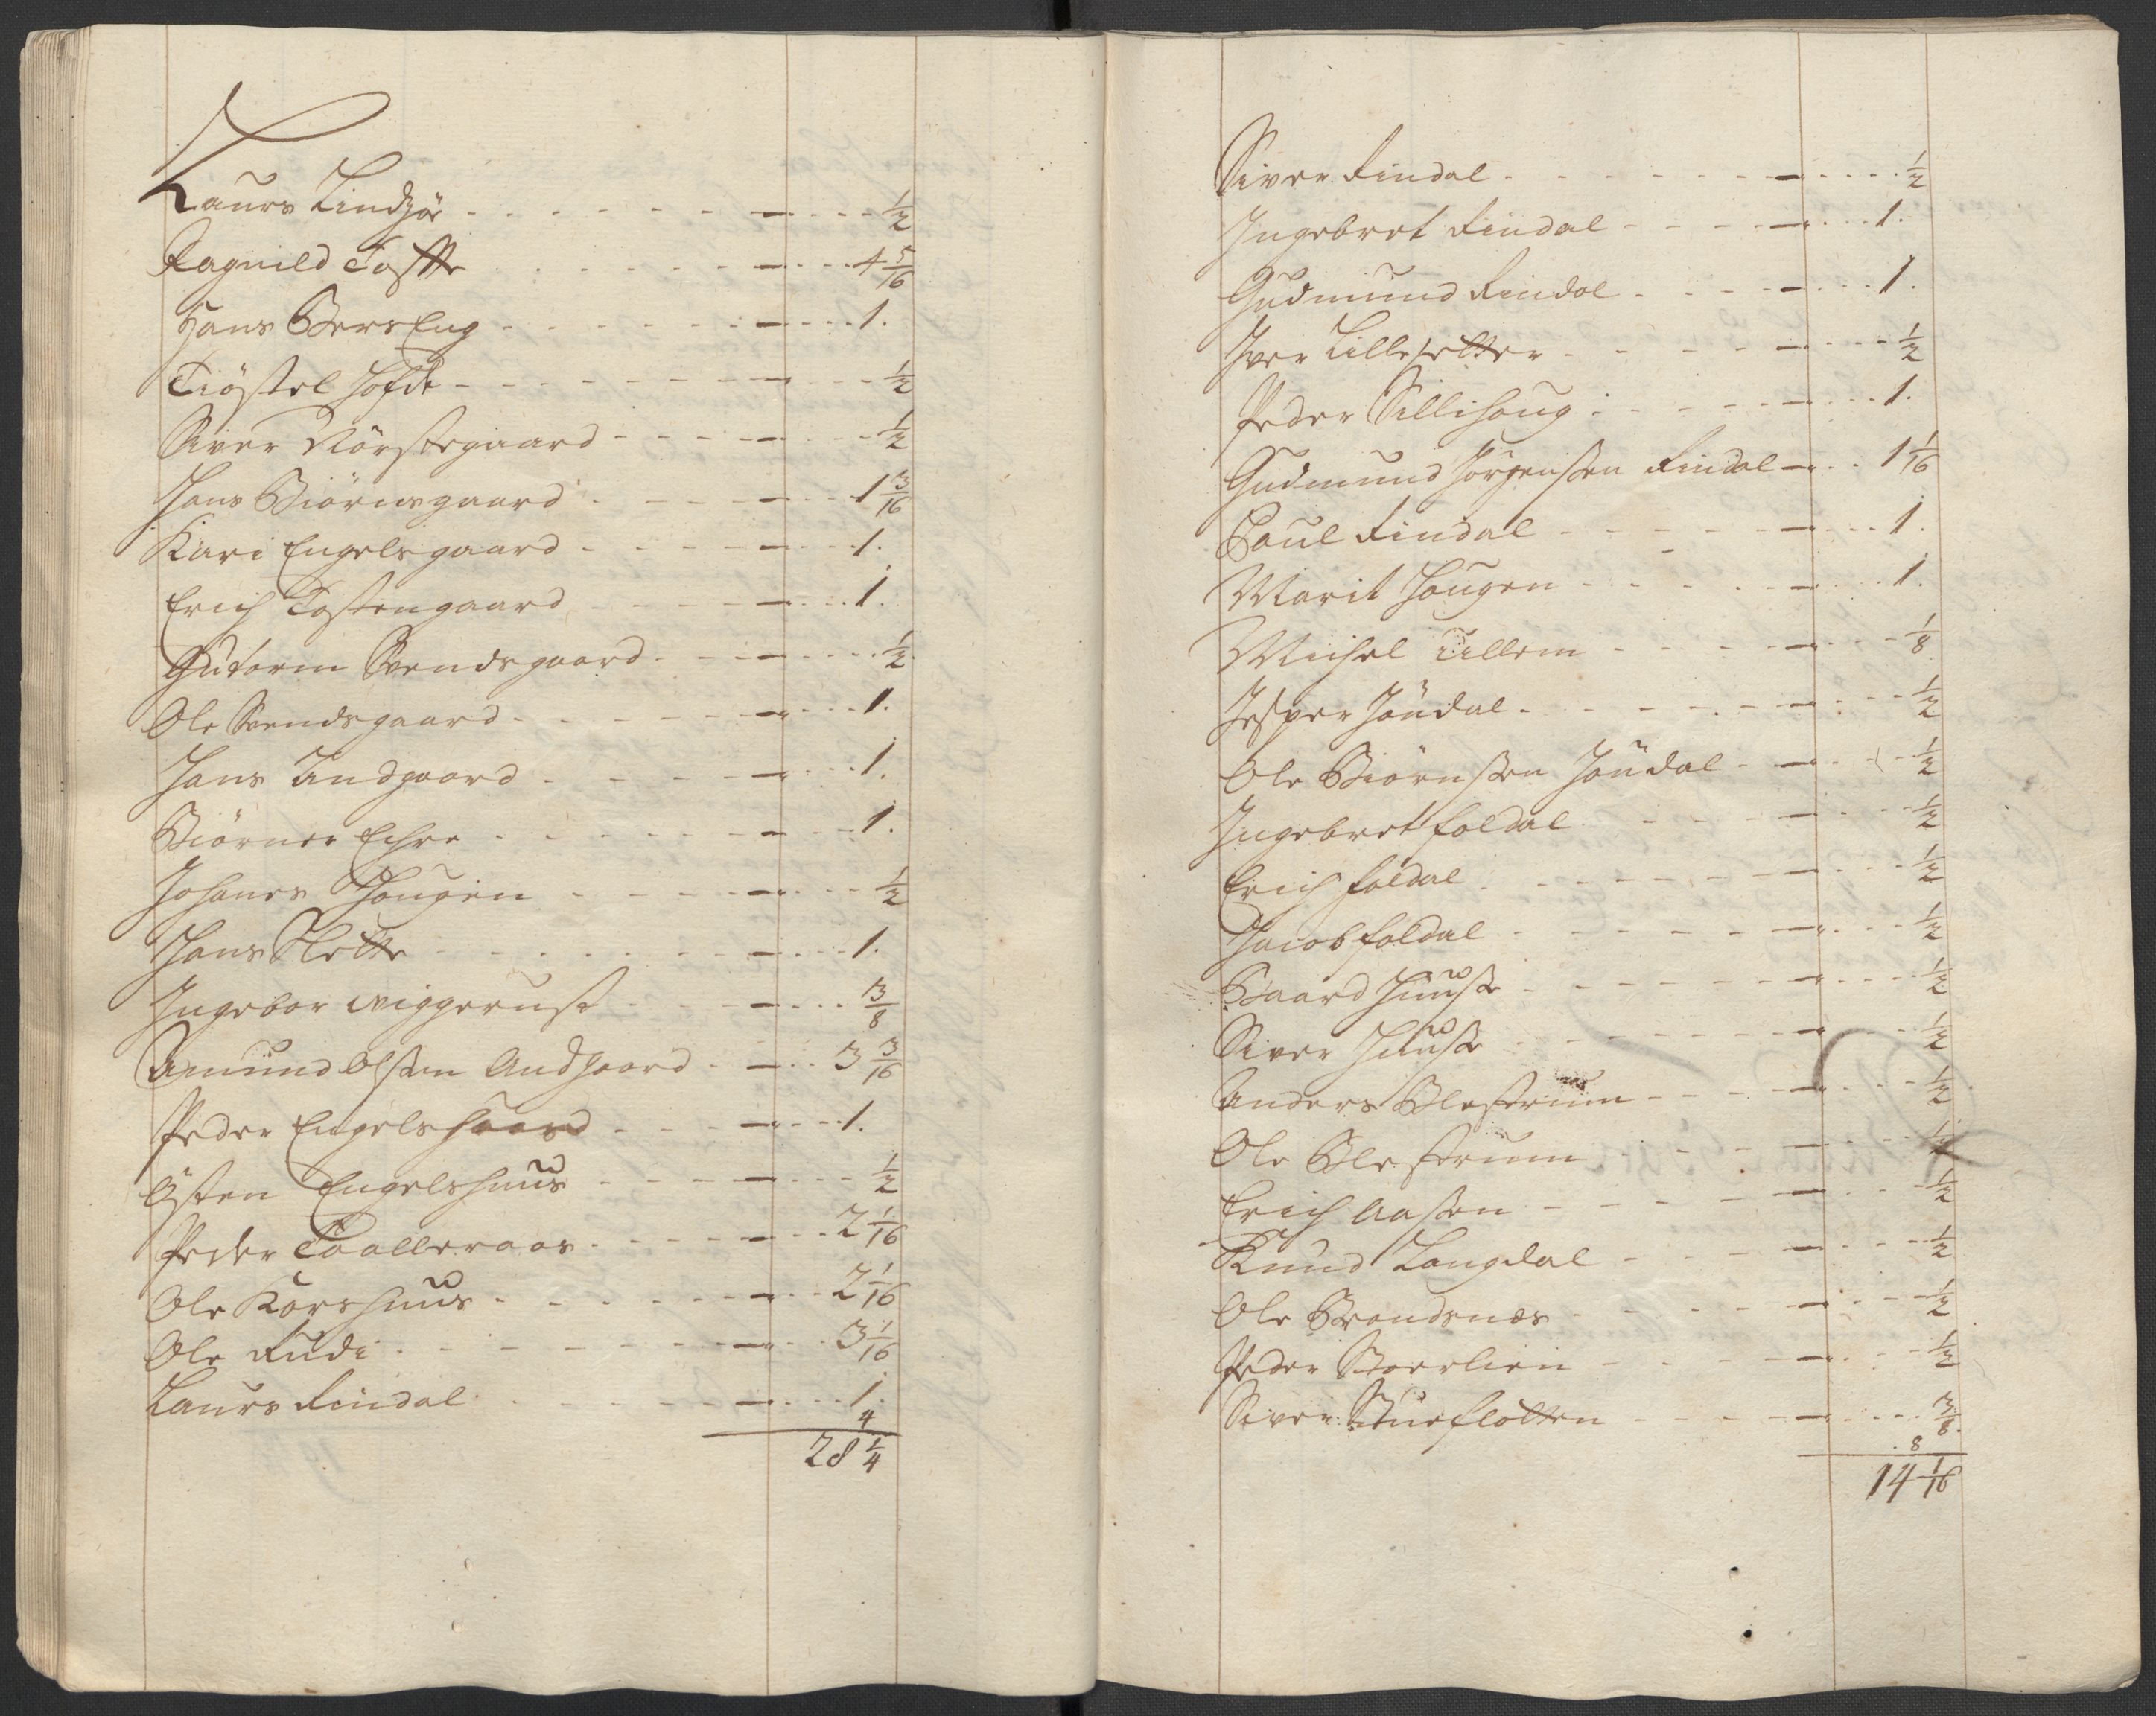 Laurs Lindsøe - - - - - - - — - - - 1/2
Ragnild Tofte - - - - - - — - - - 4 5/16
Hans BersEng - - - - - - — - - - 1.
Tiøstel Hofde - - - - - - — - - - 1/2
Siver Nørstegaard - - - - — - - - 1/2
Hans Biörnsgaard - - - - — - - - 1 3/16
Kari Engelsgaard - - - - — - - - 1.
Erich Tostengaard - - - - — - - - 1.
Gutorm Svendsgaard - - - — - - - 1/2
Ole Svendsgaard - - - - - — - - - 1.
Hans Undgaard - - - - — - - - 1.
Biörner Echre - - - - - — - - - 1.
Johanes Hougen - - - - — - - - 1/2
Hans Slette - - - - - - — - - - 1.
Ingebor Wiggerust - - - — - - - 3/8
Amund Olsen Andgaard - — - - 3 3/16
Peder Engelshaard - - - — - - - 1.
Østen Engelshuus - - - - — - - - 1/2
Peder Taalleraas - - - - — - - 2 1/16
Ole Korshuus - - - - - — - - 2 1/16
Ole Rudi - - - - - - — - - 3 1/16
Laurs Rindal - - - - - — - - - 1.
4
28 1/4
Siver Rindal - - - - - - — - - - 1/2
Ingebret Rindal - - - - — - - - 1.
Gudmund Rindal - - - - — - - - 1.
Iver Lillesetter - - - - - — - - - 1/2
Peder Sillihoug - - - - - — - - - 1.
Gudmund Jörgensen Rindal — - - 1 1/16
Poul Rindal - - - - - — - - - 1.
Marit Hougen - - - - — - - - 1.
Michel Ullem - - - - — - - - 1/8
Jesper Jöndal - - - - - — - - - 1/2
Ole Biörnsen Jöndal - — - - - 1/2
Ingebret foldal - - - - — - - - 1/2
Erich foldal - - - - - - — - - - 1/2
Jacob foldal - - - - - — - - - 1/2
Baard Huuse - - - - - — - - - 1/2
Siver Huuse - - - - - — - - - 1/2
Anders Blestrum - - - — - - - 1/2
Ole Blestrum - - - - — - - - 1/2
Erich Aasen - - - - — - - - 1/2
Knud Langdal - - - - — - - - 1/2
Ole Brandsnæs - - - - — - - - 1/2
Peder Storlien - - - - — - - - 1/2
Siver Stueflotten - - - - — - - - 3/8
8
14 1/16